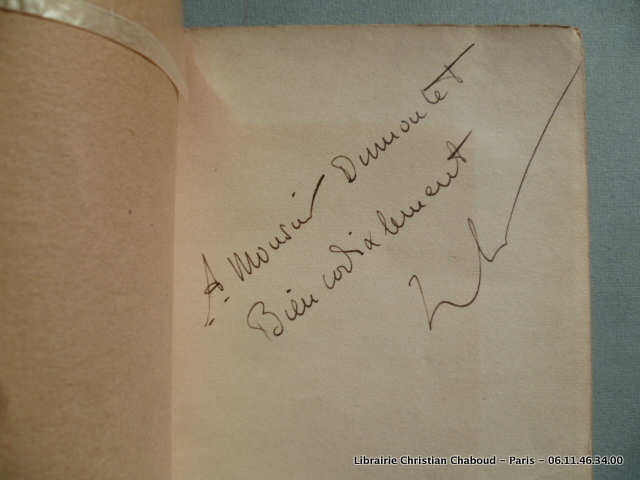 A Monsieur Dumontet
Bien cordialement
Librairie Christian Chaboud - Paris - 06.11.46.34.00